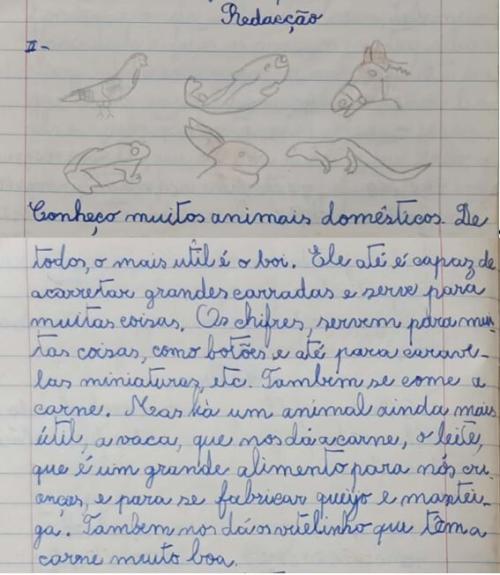 Redacção
II-
Conheço muitos animais domésticos. De
todos, o mais util é o boi. Ele até é capaz de
acarretar grandes carradas e serve para
muitas coisas. Os chifres, servem para mui-
tas coisas, como botões e até para carave-
las miniaturas, etc. Tambem se come a
carne. Mas há um animal ainda mais
útil, a vaca, que nos dá a carne, o leite,
que é um grande alimento para nós cri-
anças, e para se fabricar queijo e mantei-
ga. Tambem nos dá os vitelinho que têm a
carne muito boa.